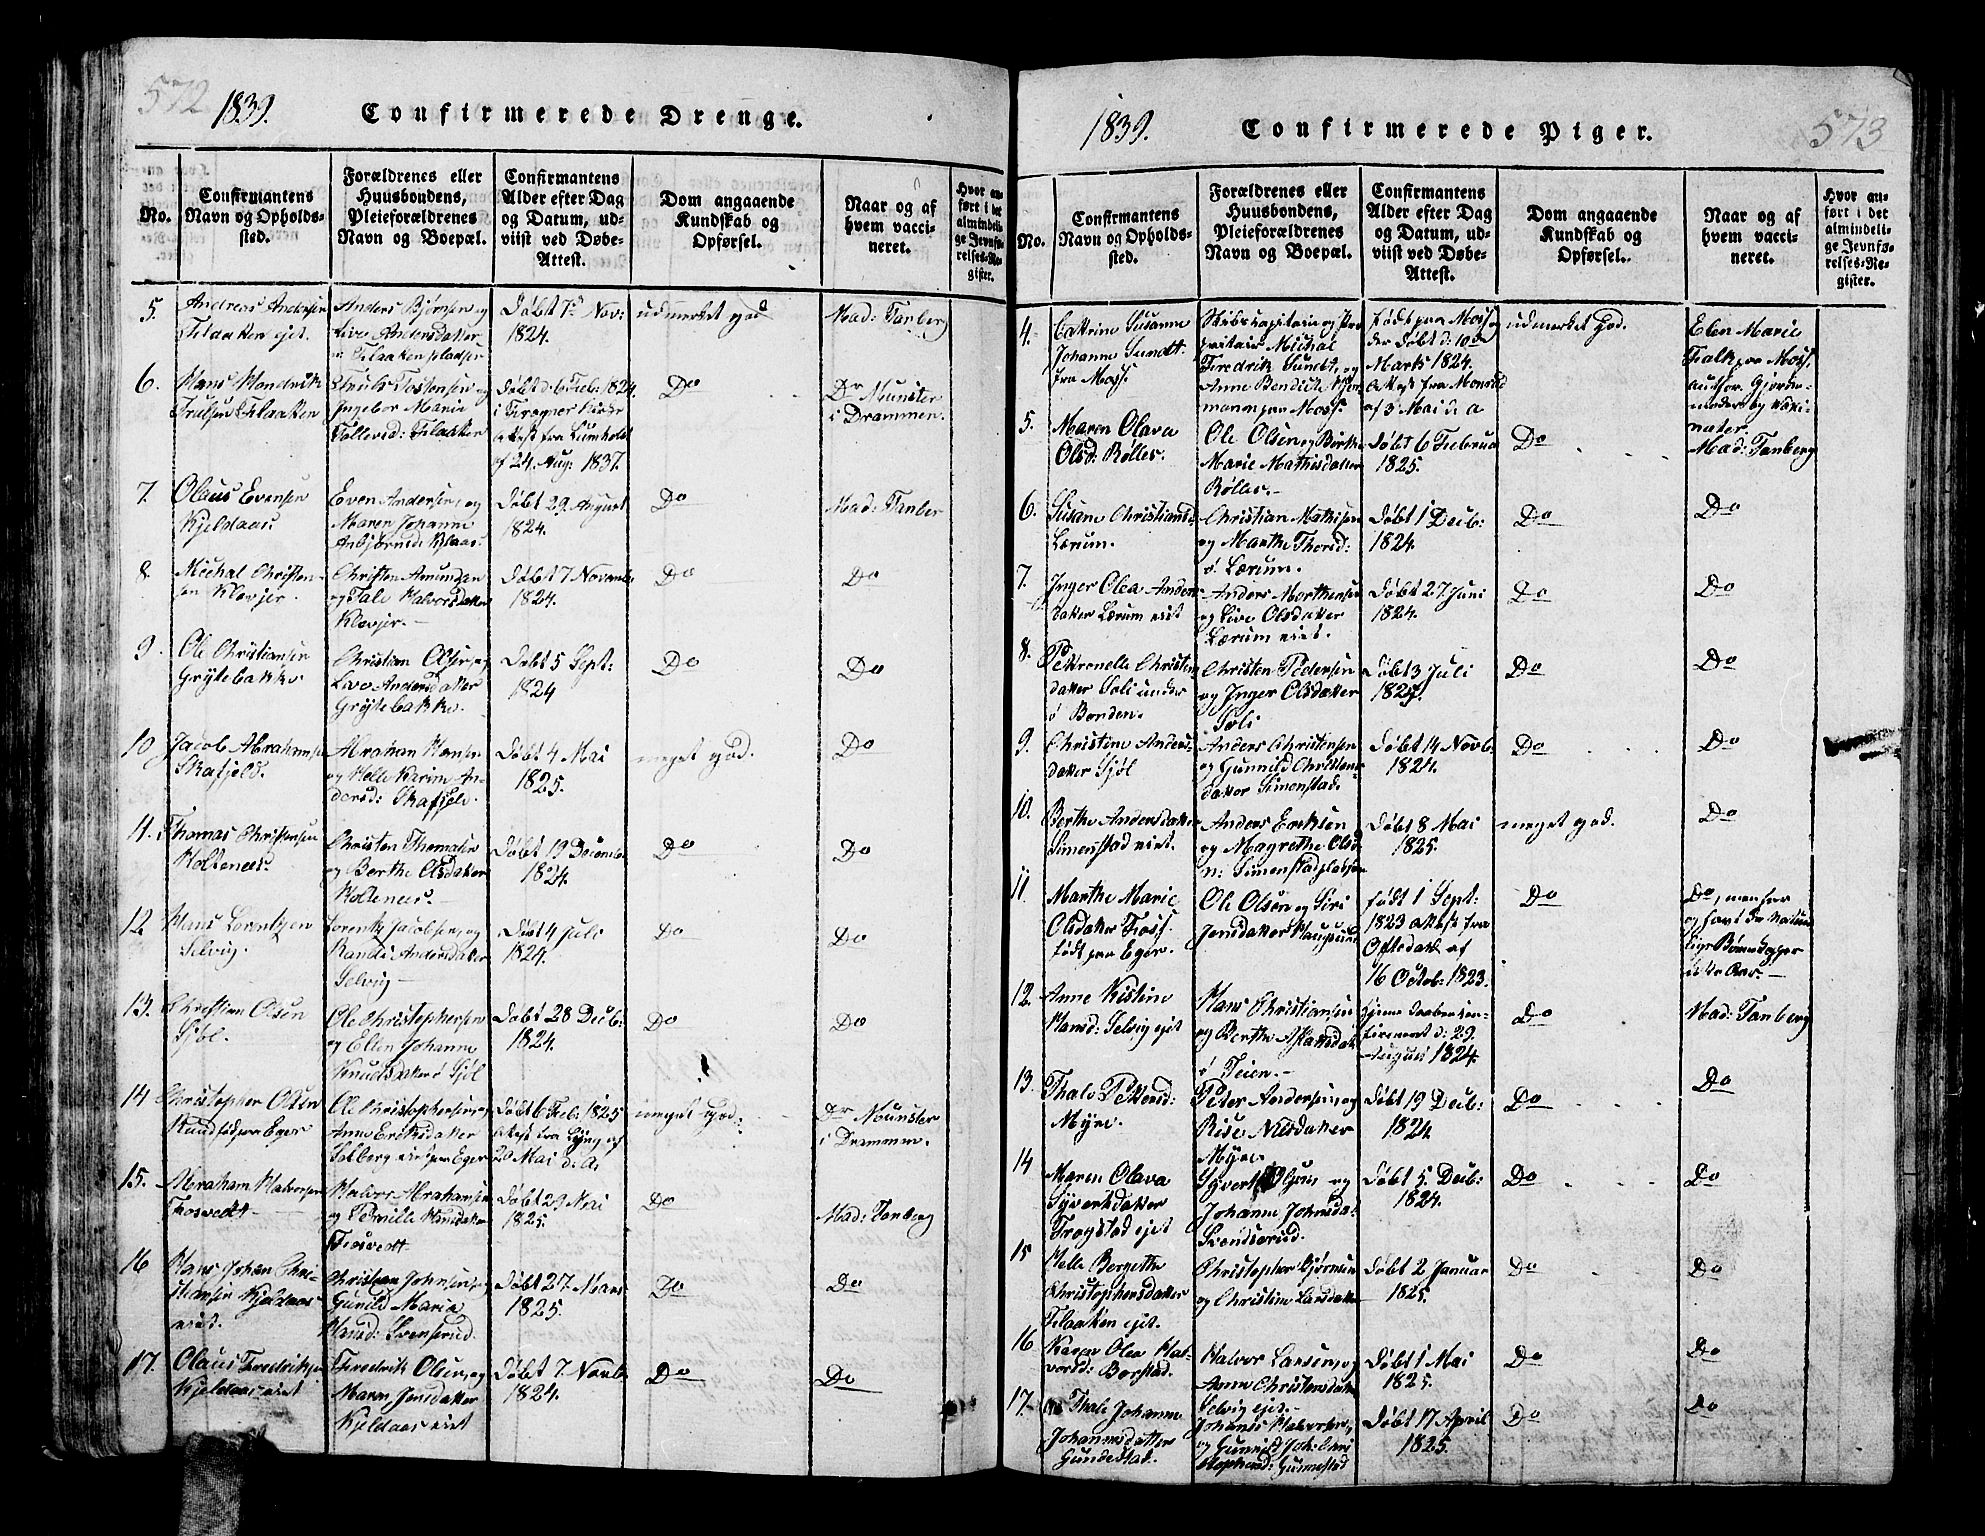 572
1839.
Confirmerede Drenge.
No.
Confirmantens
Navn og Opholds-
sted.
Forældrenes eller
Huusbondens,
Pleieforældrenes
Navn og Boepæl.
Confirmantens
Alder efter Dag
og Datum, ud-
viist ved Døbe-
Attest.
Dom angaaende
Kundskab og
Opførsel.
Naar og af
hvem vacci-
neret.
Hvor an-
ført i det
almindeli-
ge Jevnfø-
relses-Re-
gister.
5.
Andreas Andersen
Filaaken ejet.
Anders Bjørnsen og
Live Andersdatter
Filaaken pladsen
Døbt 7de Nov:
1824.
udmerket god
Mad: Tanberg
6.
Hans Hendrik
Trulsen Filaaken
Truls Tostensen og
Ingebor Maria
Tollevsd: Filaaken
Døbt d: 6 Feb: 1824
i Frogner Kirke
attest fra Lumholt
af 24. Aug: 1837.
Do
Dr Munster
i Drammen.
7.
Olaus Evensen
Kjeldaas
Even Andersen og
Maren Johanne
Asbjørnsd: Klaas:
Døbt 29 August
1824.
Do
Mad: Tanber
8
Michal Christen-
sen Klevjer.
Christen Amundsen
og Tale Halvorsdatter
Klevjer.
Døbt 7 Novemb:
1824.
Do
Do
9.
Ole Christiansen
Grytebakke.
Christian Olsen og
Live Andersdatter
Grytebakke.
Døbt 5 Sept:
1824
Do
Do
10.
Jacob Abrahamsen
Skafjeld.
Abraham Hansen
og Helle Karine An-
dersd: Skafjeld.
Døbt 4 Mai
1825.
meget god.
Do
11.
Thomas Christensen
Holtenæs.
Christen Thomasen
og Berthe Olsdatter
Holtenæs.
Døbt 19 Decemb:
1824.
Do
Do
12
Hans Lorentzen
Selvig.
Lorentz Jacobsen og
Randi Andersdatter
Selvig
Døbt 4 Juli
1824.
Do
Do
13.
Christian Olsen
Sjøl.
Ole Christophersen
og Ellen Johanne
Knudsdatter ø Sjøl
Døbt 28 Decb:
1824.
Do
Do
14
Christopher Olsen
Rund født paa Eger
Ole Christophersen og
Anne Eriksdatter
Solberg eiet paa Eger
Døbt 6 Feb: 1825
attest fra Lyng af
20 Mai d: A.
meget god.
Dr Mounster
i Drammen.
15.
Abraham Halvorsen
Fosvedt
Halvor Abrahamsen
og Pernille Hansdatter
Fosvedt
Døbt 29 Mai
1825.
Do
Mad: Tanberg
16
Hans Johan Chri-
stiansen Kjeldaas
eiet.
Christian Johnsen og
Gunild Maria
Hansd: Svenserud.
Døbt 27 Mars
1825.
Do
Do
17.
Olaus Fredriksen
Kjeldaas eiet
Fredrik Olsen og
Maren Jensdatter
Kjeldaas eiet
Døbt 7. Novb:
1824.
Do
Do
1839.
Confirmerede Piger.
573
No.
Confirmantens
Navn og Opholds-
sted.
Forældrenes eller
Huusbondens,
Pleieforældrenes
Navn og Boepæl.
Confirmantens
Alder efter Dag
og Datum, ud-
viist ved Døbe-
Attest.
Dom angaaende
Kundskab og
Opførsel.
Naar og af
hvem vacci-
neret.
Hvor an-
ført i det
almindeli-
ge Jevnfø-
relses-Re-
gister.
4.
Cattrine Susanne
Johanne Sundt.
fra Moss.
Skibskapitain og Pro
pritair Michal
Fredrik Sundt, og
Anne Bendicte
paa Moss.
født paa Moss og
der døbt d: 10de
Marts 1824.
attest fra Monrad
af 3 Mai d: a
udmerket God.
Elen Marie
Falk paa Moss,
5.
Maren Olava
Olsd: Røller.
Ole Olsen og Berthe
Marie Mathisdatter
Røller.
Døbt 6 Februar
1825.
Do
Mad: Tanberg
6.
Susane Christiansd:
Lærum.
Christian Mathisen
og Marthe Thorsd:
ø. Lærum.
Døbt 1 Decb:
1824.
Do
Do
7.
Inger Olea Anders
datter Lærum eiet
Anders Morthensen
og Live Olsdatter
Lærum eiet.
Døbt 27. Juni
1824.
Do
Do
8.
Petronelle Christens
datter Soli under
ø Bonden.
Christen Pedersen
og Inger Olsdatter
Soli
Døbt 3 Juli
1824.
Do
Do
9.
Christine Anders
datter Sjøl
Anders Christensen
og Gunnild Christens
datter Simenstad.
Døbt 14 Novb.
1824.
Do
Do
10.
Berthe Andersdatter
Simenstad eiet.
Anders Eriksen
og Magrethe Olsd
n: Simenstadpladsen
Døbt 8 Mai
1825.
meget god.
Do
11.
Marthe Marie
Olsdatter Foss.
født paa Eger.
Ole Olsen og Siri
Jensdatter Haugsund
født 1 Sept:
1823 attest fra
Oftedahl af
16 Octob: 1823.
Do
Do, men før
og havt de naturlige
Børnekopper
12.
Anne Kistine
Hansd: Selvig ejet
Hans Christiansen
og Berthe Aslaksdatter
ø Teien.
Hjemedaaben con-
firmeret d: 29
August 1824.
Do
Mad: Tanberg
13.
Thale Pettersd:
Myhre.
Peter Andersen og
Rise Nilsdatter
Myhre
Døbt 19 Decb:
1824.
Do
Do
14
Maren Olava
Syvertsdatter
Frogstad ejet
Syvert Olsen og
Johanne Johnsda:
Svendsrud.
Døbt 5. Decb:
1824.
Do
Do
15
Helle Borgethe
Christophersdatter
Filaaken ejet.
Christopher Bjørnsen
og Christine Larsdatter
Døbt 2 Januar
1825.
Do
Do
16
Karen Olea Hal-
vorsd: Borstad.
Halvor Larsen og
Anne Christensdatter
Selvig ejet.
Døbt 1 Mai
1825.
Do
Do
17.
Thale Johanne
Johannesdatter
Gundestad.
Johanes Halvorsen,
og Gunnild Joh: Chri
stophersd: Gunnestad
Døbt 17 April
1825.
Do
Do